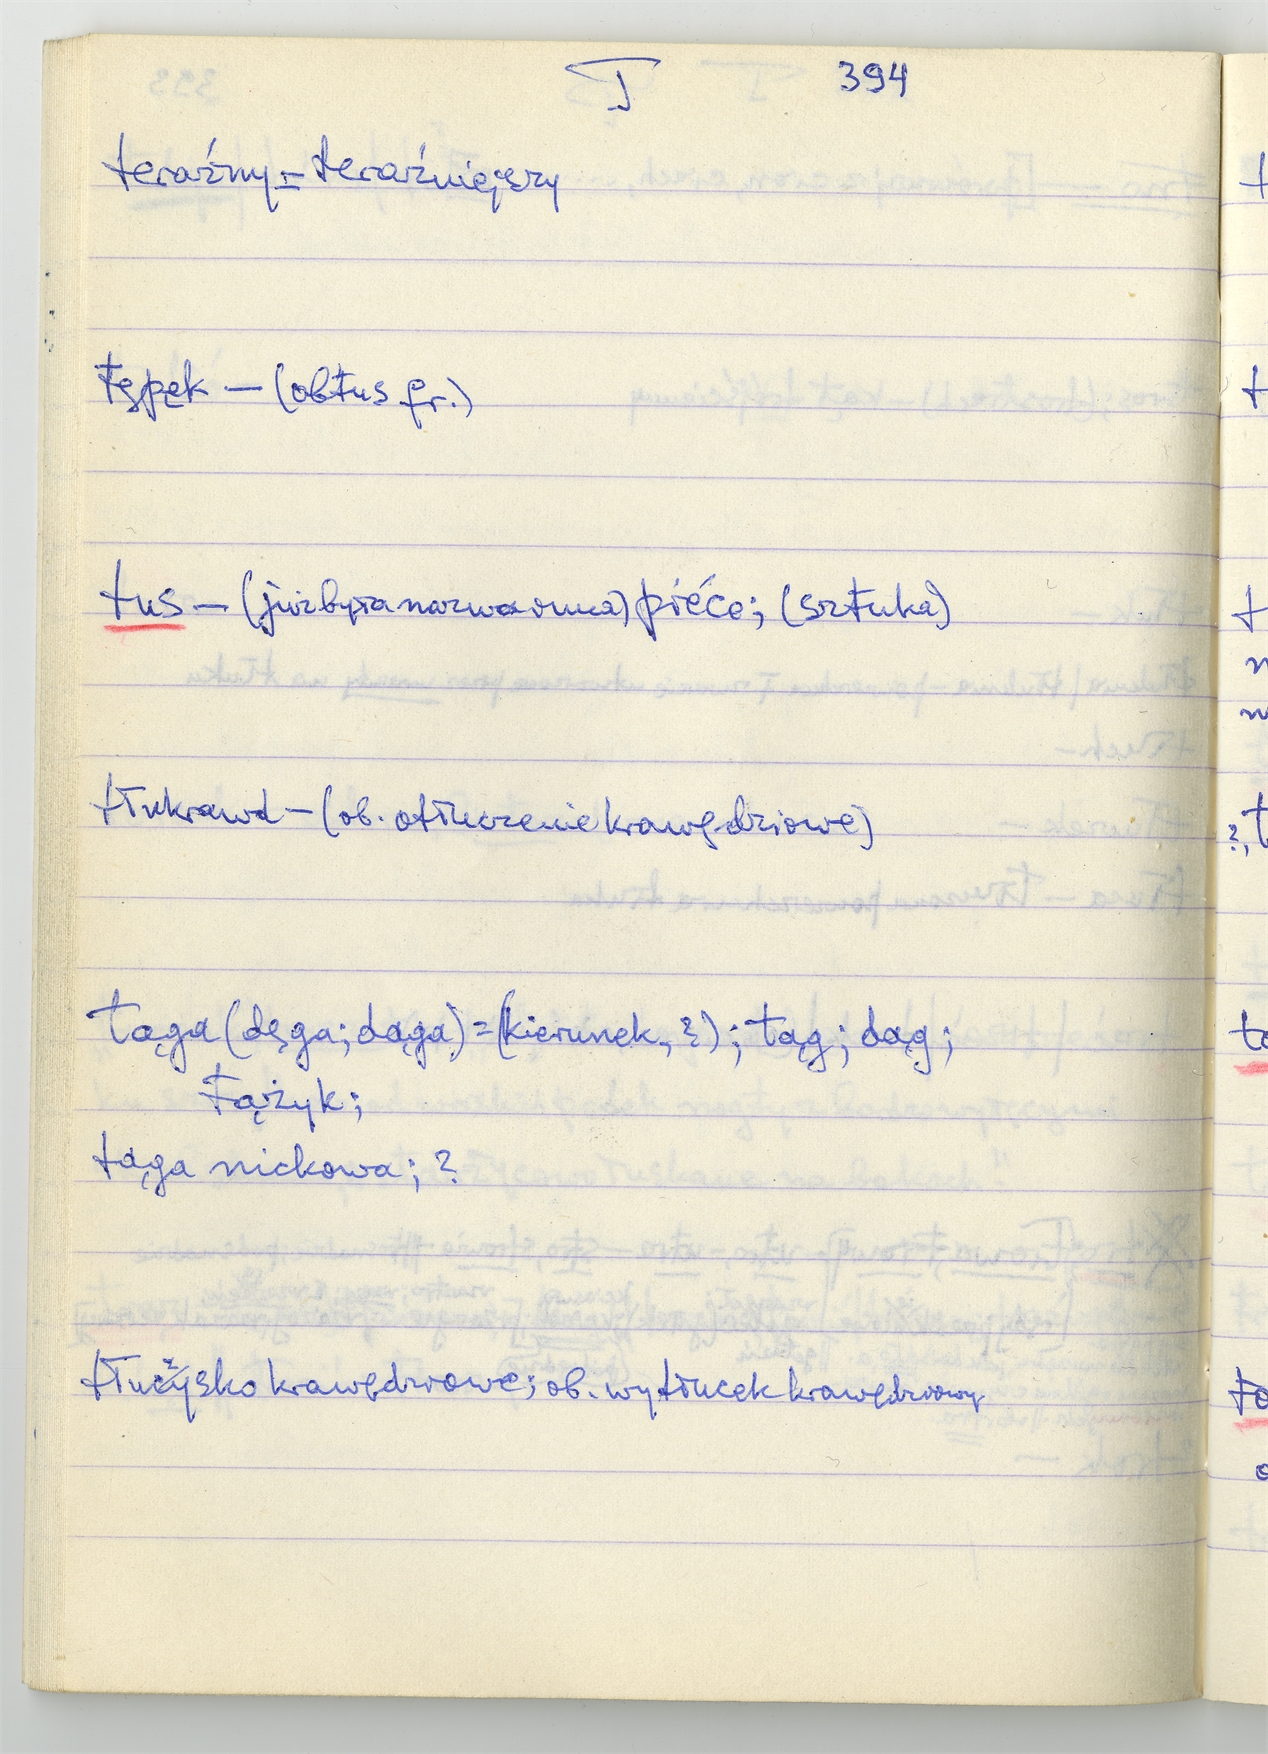 T 394
teraźny = teraźniejszy
tępęk — (obtus fr.)
tus — (już była nazwa inna) pięće; (sztuka)
tłukrawd — (ob. otłuczenie krawędziowe)
tąga (dęga; dąga) = (kierunek, ?); tąg; dąg;
tążyk;
tąga nickowa; ?
tłuczysko krawędziowe; ob. wytłucek krawędziowy